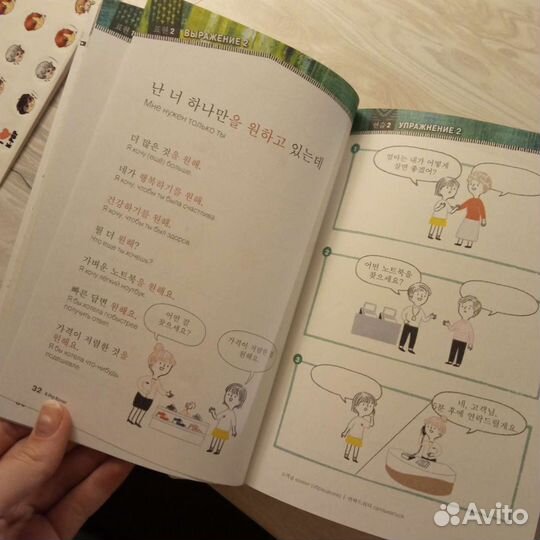 표현 2 ВЫРАЖЕНИЕ 2
난 너 하나만을 원하고 있는데
Мне нужен только ты
더 많은 것을 원해.
Я хочу (ещё) больше.
네가 행복하기를 원해.
Я хочу, чтобы ты была счастлива.
건강하기를 원해.
Я хочу, чтобы ты был здоров.
뭘 더 원해?
Что ещё ты хочешь?
가벼운 노트북을 원해요.
Я хочу лёгкий ноутбук.
빠른 답변 원해요.
Я бы хотела побыстрее
получить ответ.
가격이 저렴한 것을
원해요.
Я бы хотела что-нибудь
подешевле.
어떤 걸
찾으세요?
가격이 저렴한 걸
원해요.
32
연습 2 УПРАЖНЕНИЕ 2
1
엄마는 네가 어떻게
살면 좋겠어?
2
어떤 노트북을
찾으세요?
3
네, 고객님.
5분 후에 연락드릴게요.
Avito